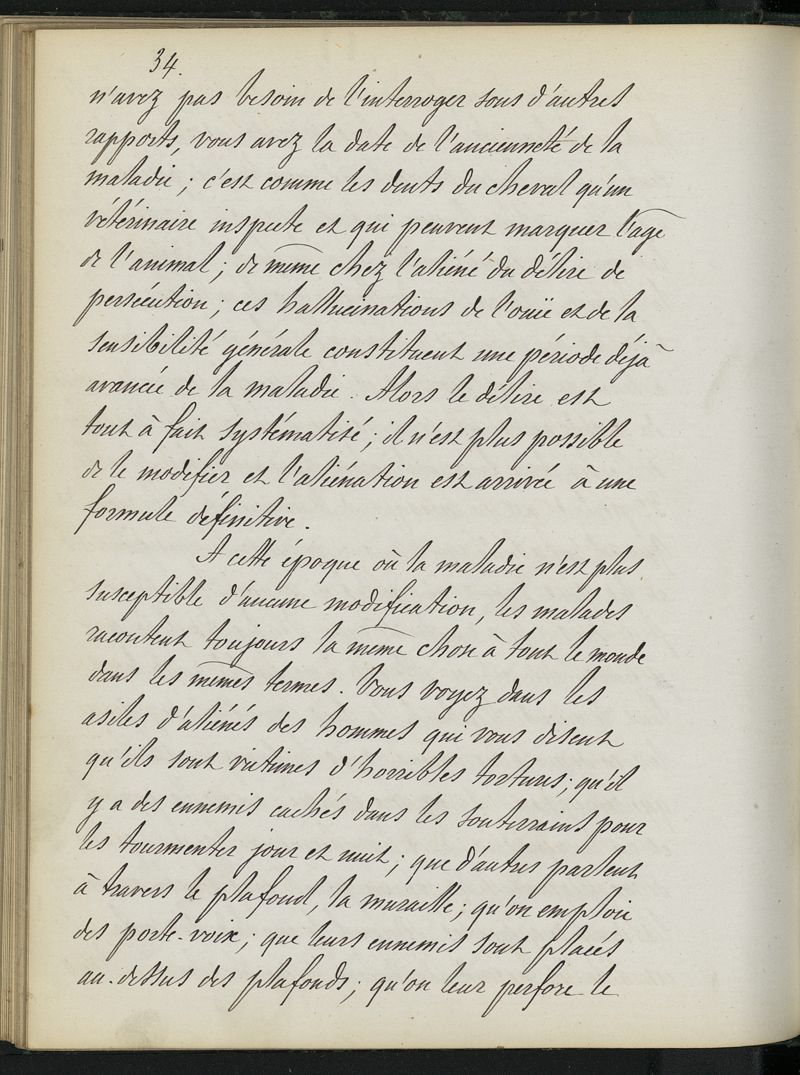 34.
n'avez pas besoin de l'interroger sous d'autres
rapports, vous avez la date de l'ancienneté de la
maladie ; c'est comme les dents du cheval qu'un
vétérinaire inspecte et qui peuvent marquer l'âge
de l'animal ; de même chez l'aliéné du délire de
persécution ; ces hallucinations de l'ouïe et de la
sensibilité générale constituent une période déjà
avancée de la maladie. Alors le délire est
tout à fait systématisé ; il n'est plus possible
de le modifier et l'aliénation est arrivée à une
formule définitive.
A cette époque où la maladie n'est plus
susceptible d'aucune modification, les malades
racontent toujours la même chose à tout le monde
dans les mêmes termes. Vous voyez dans les
asiles d'aliénés des hommes qui vous disent
qu'ils sont victimes d'horribles tortures ; qu'il
y a des ennemis cachés dans les souterrains pour
les tourmenter jour et nuit ; que d'autres parlent
à travers le plafond, la muraille ; qu'on emploie
des porte-voix ; que leurs ennemis sont placés
au-dessus des plafonds ; qu'on leur perfore le